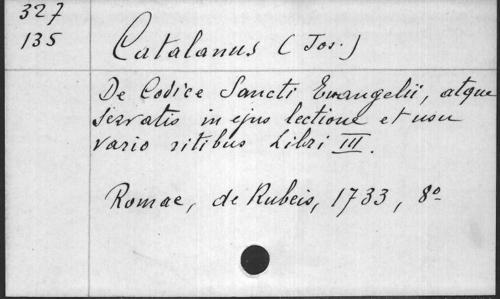 327
135
Catalanus (Jos.)
De Codice Sancti Evangelii, atque
servatis in ejus lectione et usu
vario ritibus Libri III.
Romae, de Rubeis, 1733, 8º